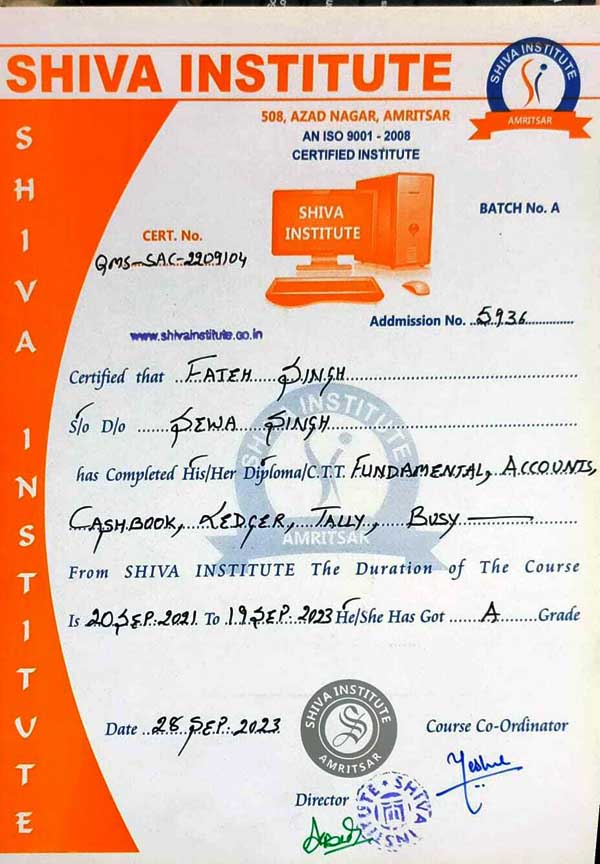 SHIVA INSTITUTE
SHIVA INSTITUTE
AMRITSAR
508, AZAD NAGAR, AMRITSAR
AN ISO 9001 - 2008
CERTIFIED INSTITUTE
SHIVA INSTITUTE
SHIVA
INSTITUTE
BATCH No. A
CERT. No.
QMS-SAC-2209104
Addmission No. ..5936..............
www.shivainstitute.co.in
Certified that ...FATEH....SINGH.......................................
S/o D/o ......SEWA....SINGH.......................................
SHIVA INSTITUTE
has Completed His/Her Diploma/C.T.T. FUNDAMENTAL, ACCOUNTS,
CASHBOOK, LEDGER, TALLY, BUSY
AMRITSAR
From SHIVA INSTITUTE The Duration of The Course
Is 20 SEP. 2021 To 19 SEP. 2023 He/She Has Got ......A.......Grade
SHIVA INSTITUTE
AMRITSAR
Date ..28 SEP. 2023
Course Co-Ordinator
Director
SHIVA INSTITUTE